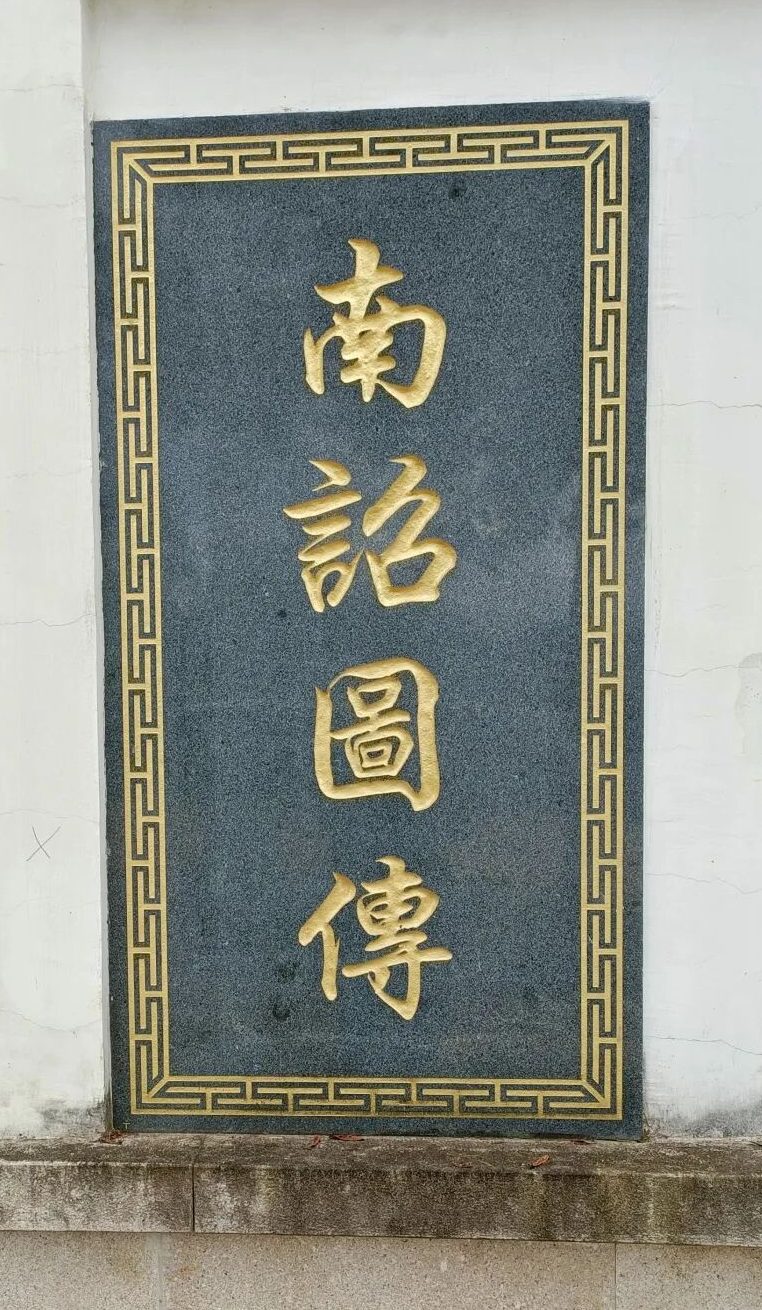 南詔圖傳